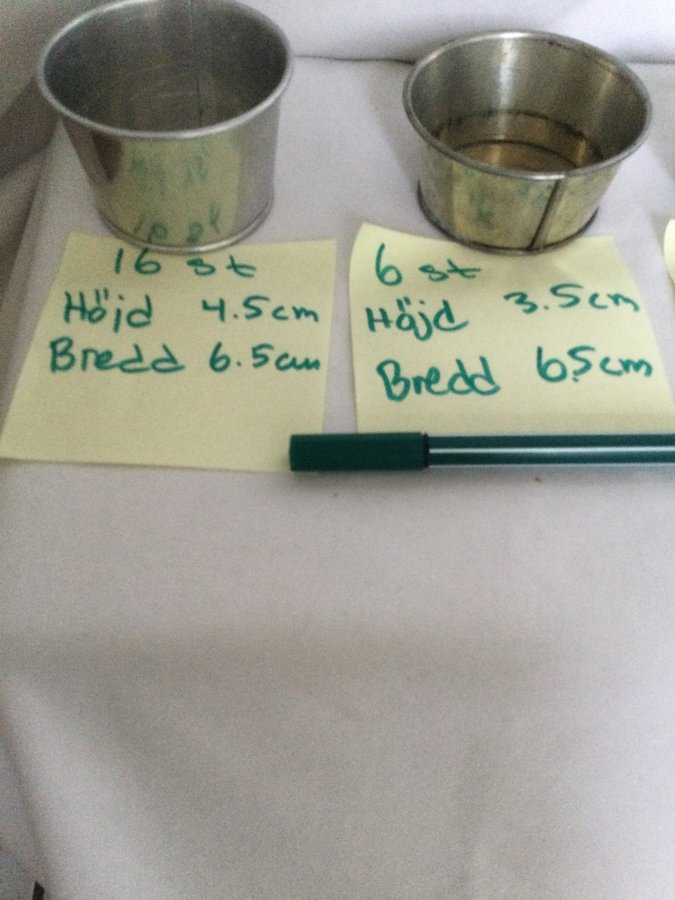 16 st
Höjd 4.5cm
Bredd 6.5cm
6 st
Höjd 3.5cm
Bredd 6.5cm